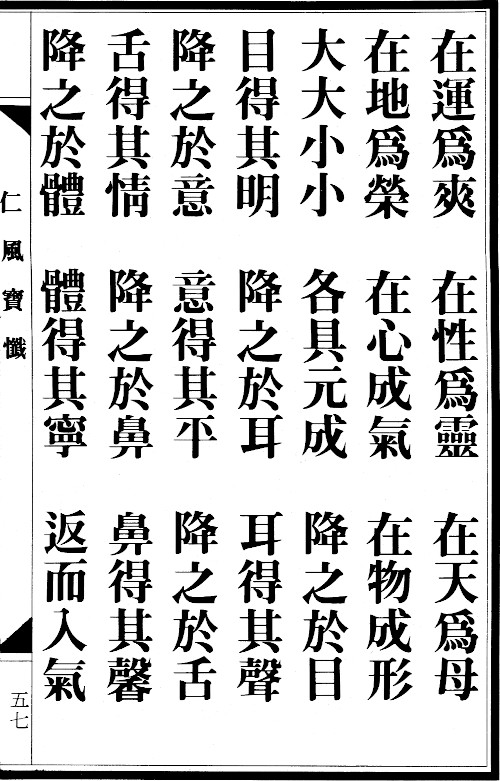 在運爲爽　在性爲靈　在天爲母
在地爲榮　在心成氣　在物成形
大大小小　各具元成　降之於目
目得其明　降之於耳　耳得其聲
降之於意　意得其平　降之於舌
舌得其情　降之於鼻　鼻得其馨
降之於體　體得其寧　返而入氣
仁風寶懺
五七